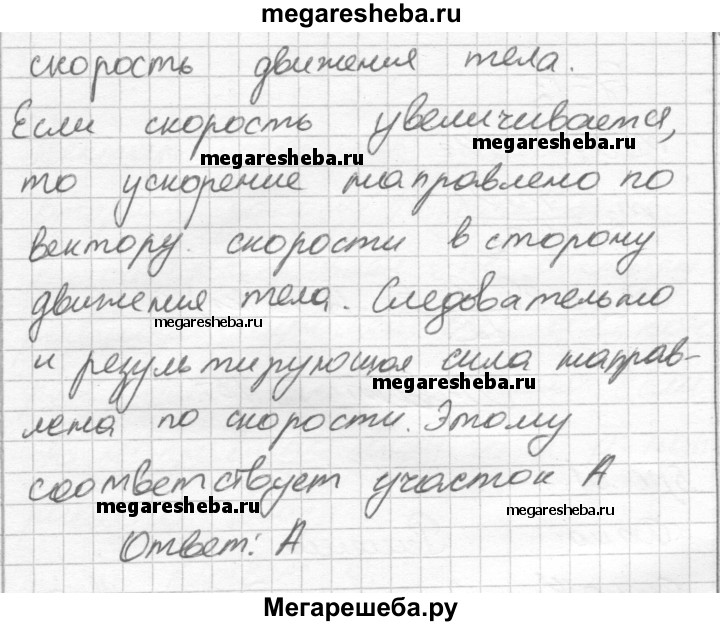 megaresheba.ru
скорость движения тела.
Если скорость увеличивается,
megaresheba.ru
megaresheba.ru
то ускорение направлено по
вектору скорости в сторону
движения тела. Следовательно
megaresheba.ru
и результирующая сила направ-
megaresheba.ru
лена по скорости. Этому
соответствует участок А
megaresheba.ru
megaresheba.ru
Ответ: А
Мегарешеба.ру